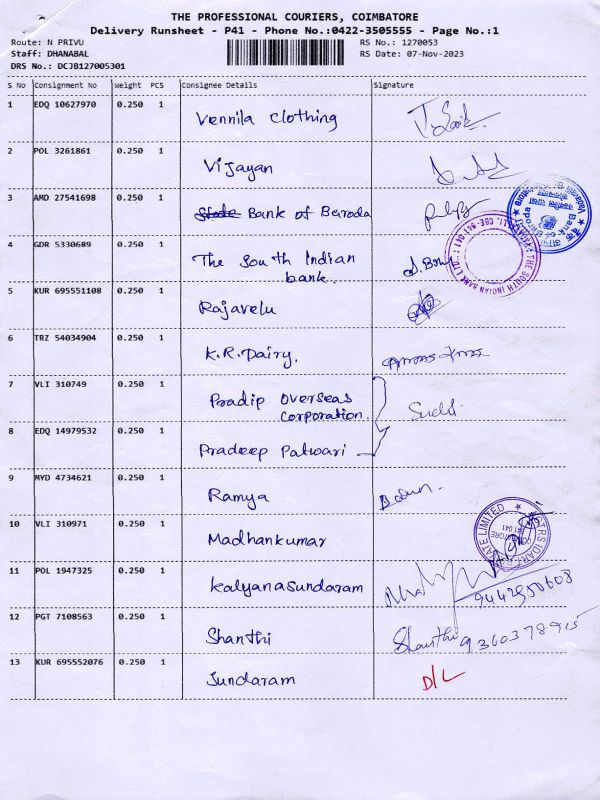 THE PROFESSIONAL COURIERS, COIMBATORE
Delivery Runsheet - P41 - Phone No.:0422-3505555 - Page No.:1
Route: N PRIVU RS No.: 1270053
Staff: DHANABAL RS Date: 07-Nov-2023
DRS No.: DCJB127005301
S No Consignment No Weight PCS Consignee Details Signature
1 EDQ 10627970 0.250 1 Vennila Clothing
2 POL 3261861 0.250 1 Vijayan
3 AMD 27541698 0.250 1 State Bank of Beroda
4 GDR 5330689 0.250 1 The South Indian
bank
5 KUR 695551108 0.250 1 Rajavelu
6 TRZ 54034904 0.250 1 K.R. Dairy.
7 VLI 310749 0.250 1 Pradip Overseas
Corporation.
8 EDQ 14979532 0.250 1 Pradeep Patwari
9 MYD 4734621 0.250 1 Ramya
10 VLI 310971 0.250 1 Madhankumar
11 POL 1947325 0.250 1 Kalyanasundaram
12 PGT 7108563 0.250 1 Shanthi Shanthi
13 KUR 695552076 0.250 1 Sundaram D/L